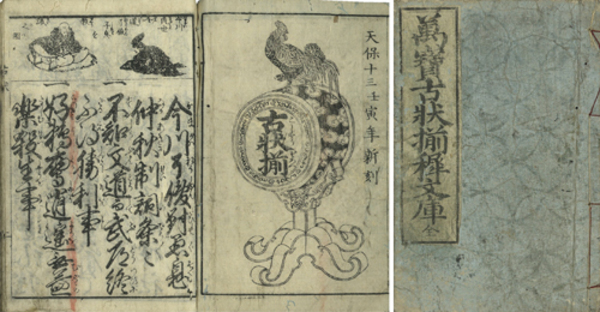 萬寶古狀揃穉文庫 全
天保十三壬寅年新刻
古狀揃
今川了俊對愚息
仲秋制詞條々
一不知文道而武道終
不得勝利事
一好鵜鷹逍遥無益
樂殺生事